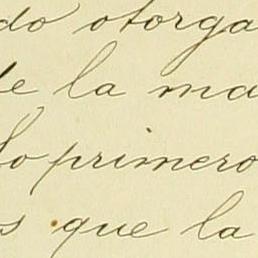 do otorga
de la ma
lo primero
s que la